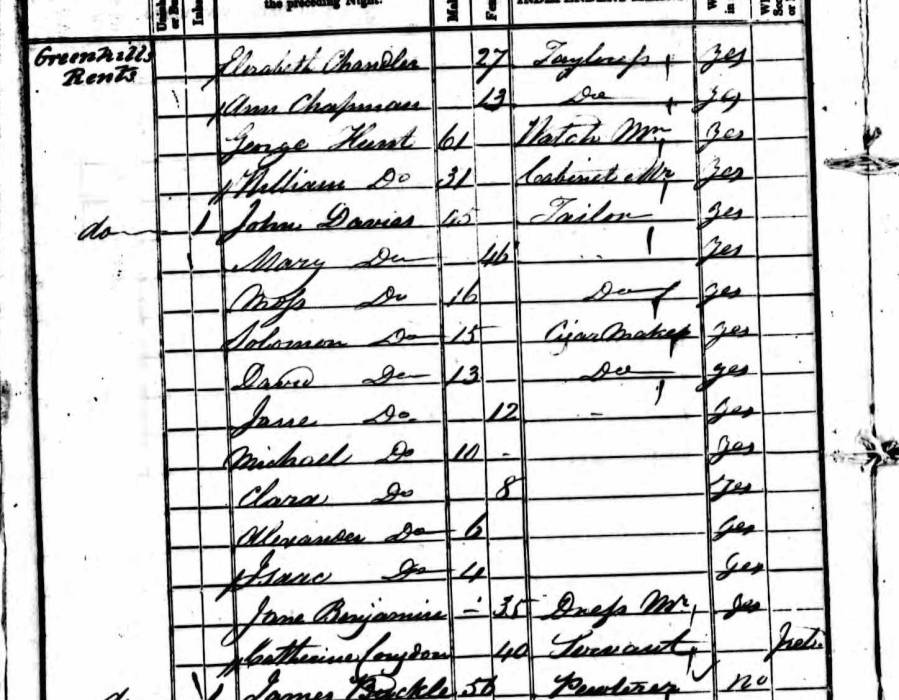 the preceding Night.
Greenhills Elizabeth Chandler 27 Tayloress Yes
Rents
Ann Chapman 13 Do Yes
George Hunt 61 Watch Mr Yes
William Do 31 Cabinet Mr Yes
do 1 John Davies 45 Tailor Yes
Mary Do 46 Yes
Moss Do 16 Do Yes
Solomon Do 15 Cigar Maker Yes
David Do 13 Do Yes
Jane Do 12 Yes
Michael Do 10 Yes
Clara Do 8 Yes
Alexander Do 6 Yes
Isaac Do 4 Yes
Jane Benjamin 35 Dress Mr Yes
Catherine 40 Servant
do 1 James Buckle 56 Pewterer no